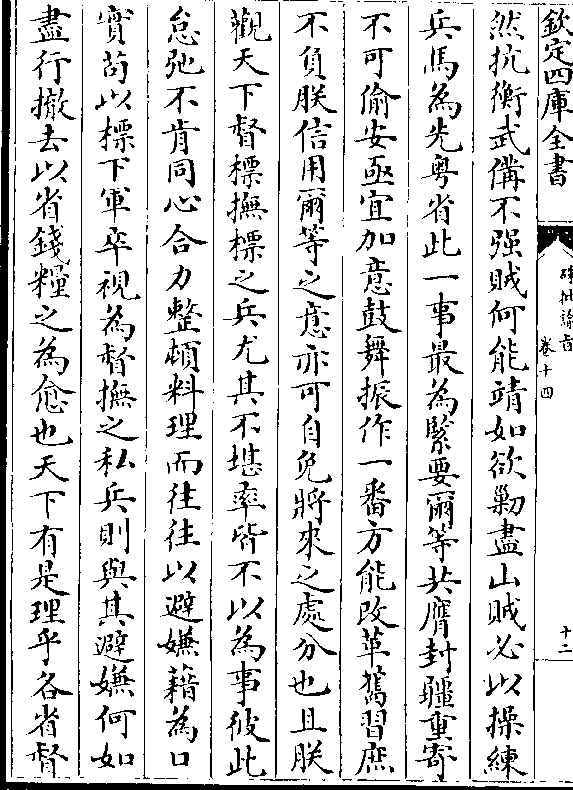 欽定四庫全書
硃批諭旨
卷十四
十二
然抗衡武備不强賊何能靖如欲勦盡山賊必以操練
兵馬為先粤省此一事最為緊要爾等共膺封疆重寄
不可偷安亟宜加意鼓舞振作一番方能改革舊習庶
不負朕信用爾等之意亦可自免將來之處分也且朕
觀天下督標撫標之兵尤其不堪率皆不以為事彼此
怠弛不肯同心合力整頓料理而往往以避嫌藉為口
實苟以標下軍卒視為督撫之私兵則與其避嫌何如
盡行撤去以省錢糧之為愈也天下有是理乎各省督